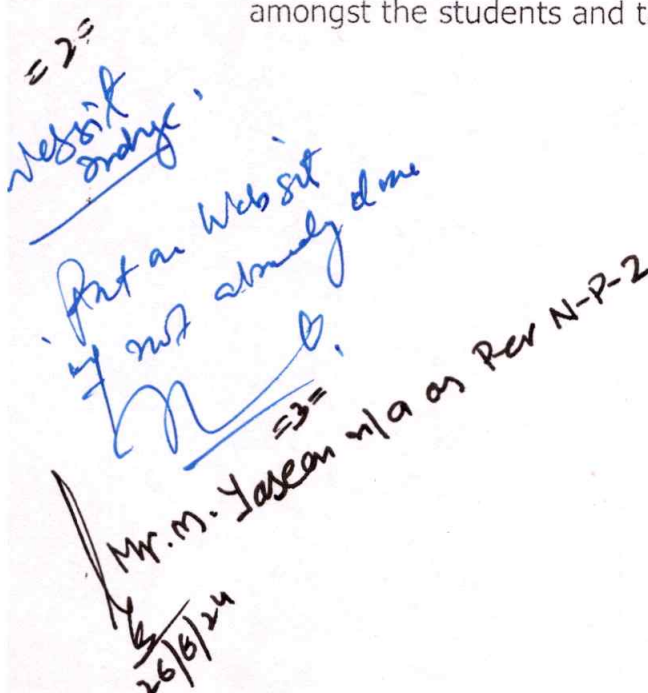 amongst the students and t
=2=
Website
Incharge
Put on Web sit
if not already done
=3=
Mr. M. Yaseen n/a as Per N-P-2
26/6/24